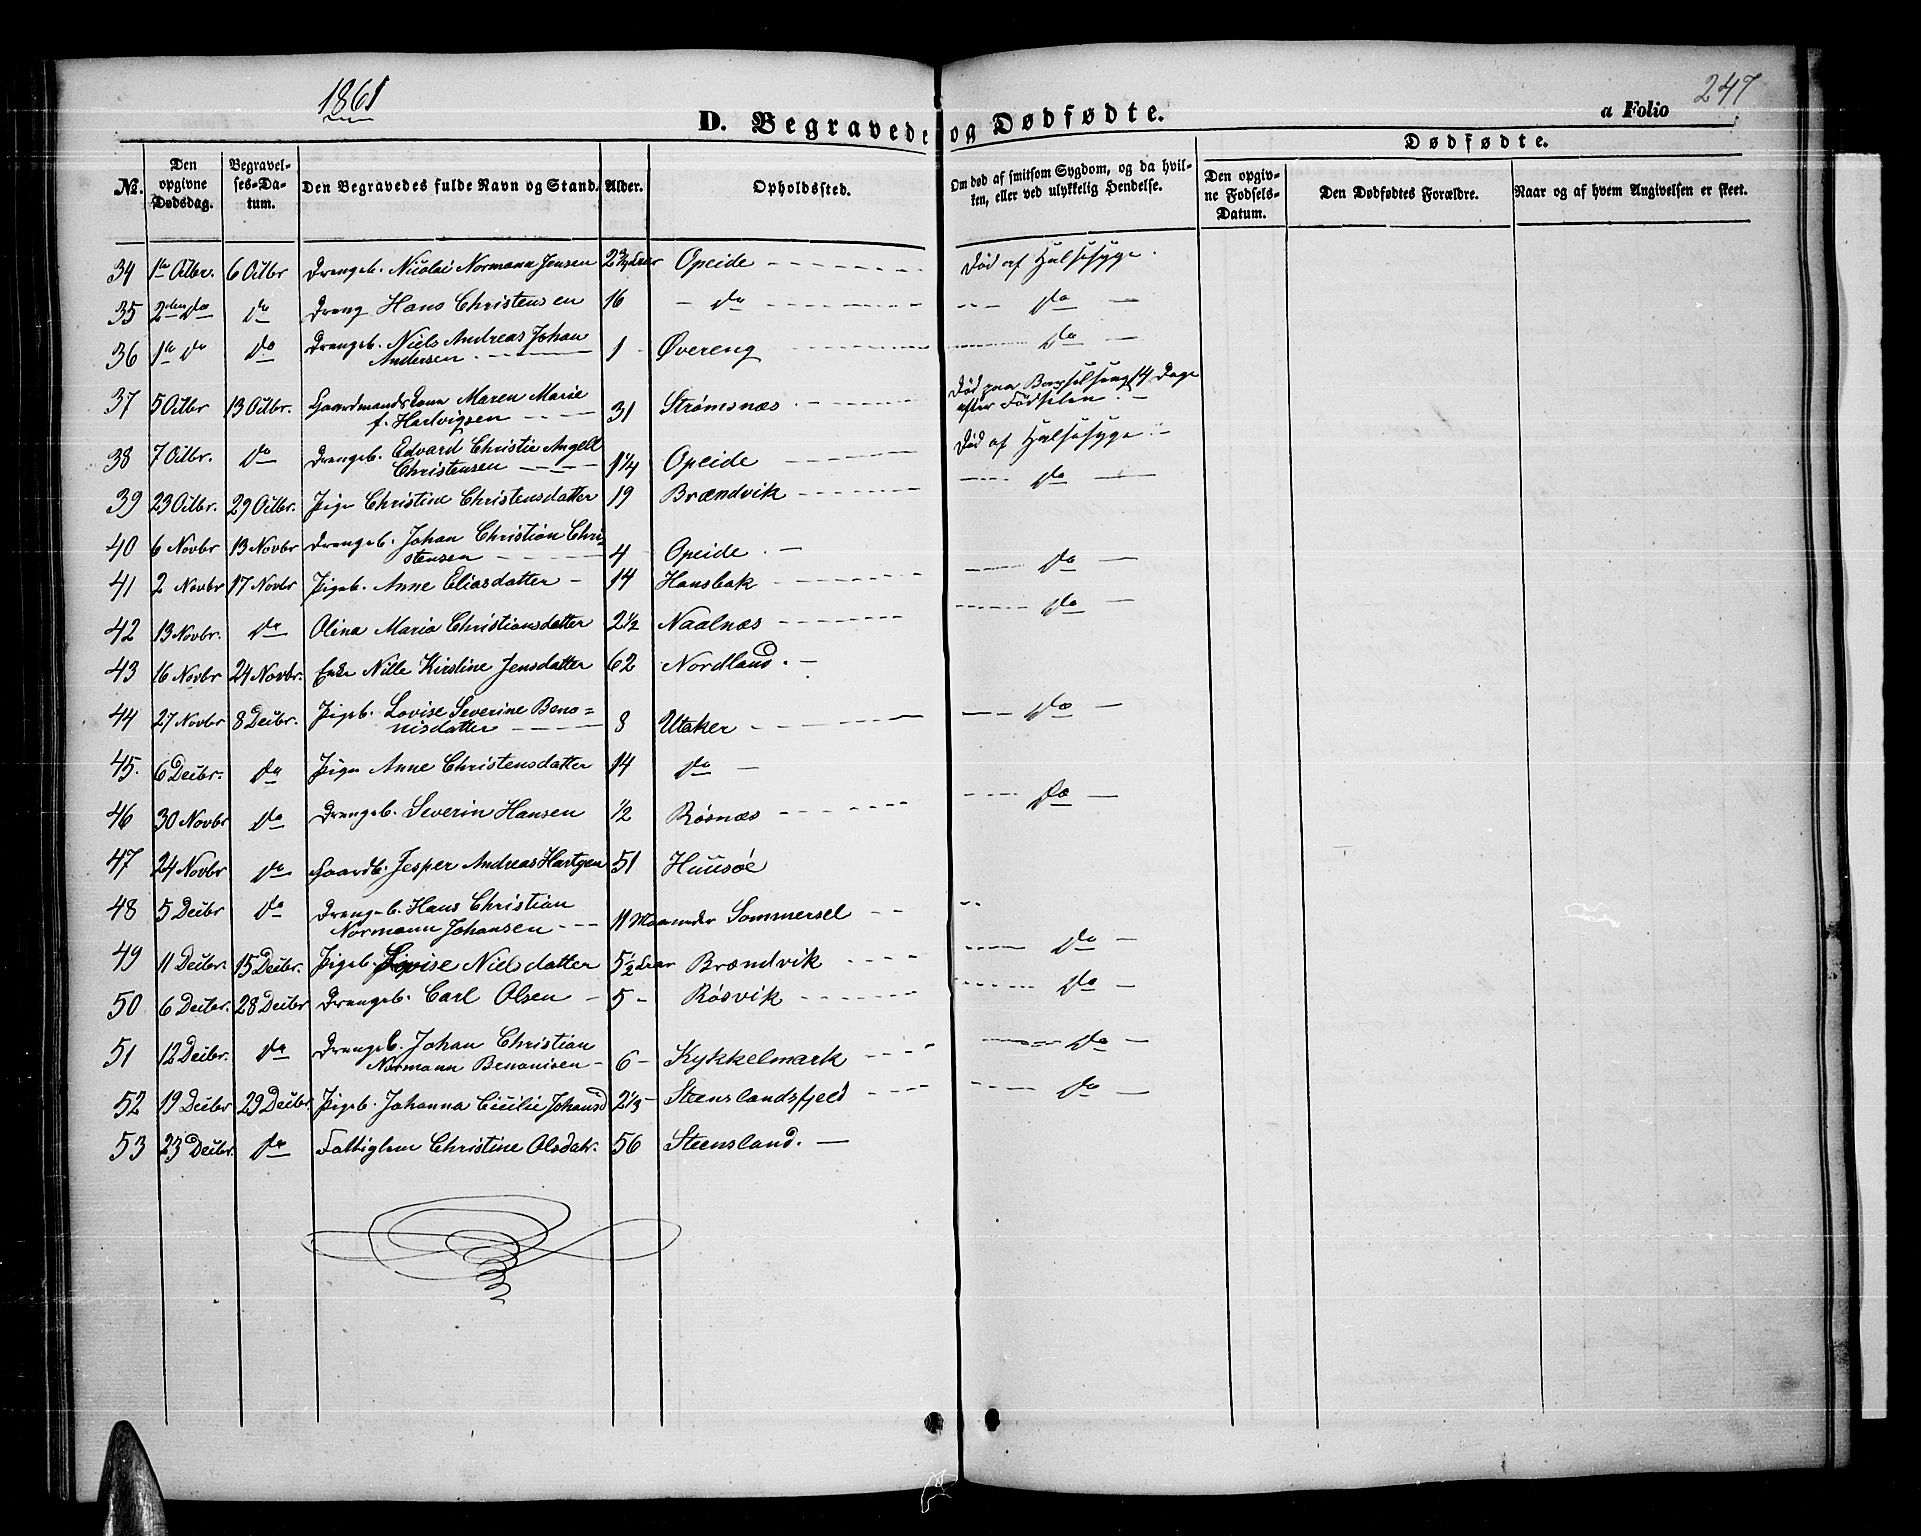 1861
247
D. Begravede og Dødfødte.
a Folio
Dødfødte.
No. Den opgivne Dødsdag. Begravelses-Datum. Den Begravedes fulde Navn og Stand. Alder. Opholdssted. Om død af smitsom Sygdom, og da hvilken, eller ved ulykkelig Hendelse. Den opgivne Fødsels-Datum. Den Dødfødtes Forældre. Naar og af hvem Angivelsen er skeet.
34 1ste Octbr. 6 Octbr Drengeb. Nicolai Normann Jensen Opeide Død af Halssyge.
35 2den Do Do Dreng Hans Christensen 16 - Do Do
36 1ste Do Do Drengeb. Niels Andreas Johan
Andersen 1 Øvereng Do
37 5 Octbr 13 Octbr. Gaardmandskone Maren Marie
f. Hartvigsen 31 Strømsnæs Død paa Barselseng 14 Dage
efter Fødselen
38 7 Octbr. Do Drengeb. Edvard Christie Angell
Christensen 1 1/4 Opeide Død af Halssyge
39 23 Octbr. 29 Octbr. Pige Christine Christensdatter 19 Brændvik Do
40 6 Novbr 13 Novbr Drengeb. Johan Christian Chri-
stensen 4 Opeide
41 2 Novbr 17 Novbr Pigeb. Anne Eliasdatter 14 Hansbak Do
42 13 Novbr. Do Olina Maria Christiansdatter 2 1/2 Naalnæs Do
43 16 Novbr 24 Novbr. Enke Nille Kirstine Jensdatter 62 Nordland
44 27 Novbr 8 Decbr. Pigeb. Lovise Severine Beno=
nisdatter 8 Utaker Do
45. 6 Decbr. Do Pige Anne Christensdatter 14 Do
46 30 Novbr Do Drengeb. Severin Hansen 1/2 Røsnæs Do
47 24 Novbr Do Gaardb. Jesper Andreas Hartgen 51 Huusøe
48 5 Decbr Do Drengeb. Hans Christian
Normann Johansen 11 Maaneder Sommersel
49 11 Decbr. 15 Decbr. Pigeb. Lovise Nielsdatter 5 1/2 Aar Brændvik Do
50 6 Decbr. 28 Decbr Drengeb. Carl Olsen 5 Røsvik Do
51 12 Decbr. Do Drengeb. Johan Christian
Normann Benonisen 6 Kykkelmark Do
52 19 Decbr 29 Decbr Pigeb. Johanna Cicilie Johansd 2 1/3 Steenslandsfjeld Do
53 23 Decbr. Do Fattiglem Christine Olsdatr. 56 Steensland.